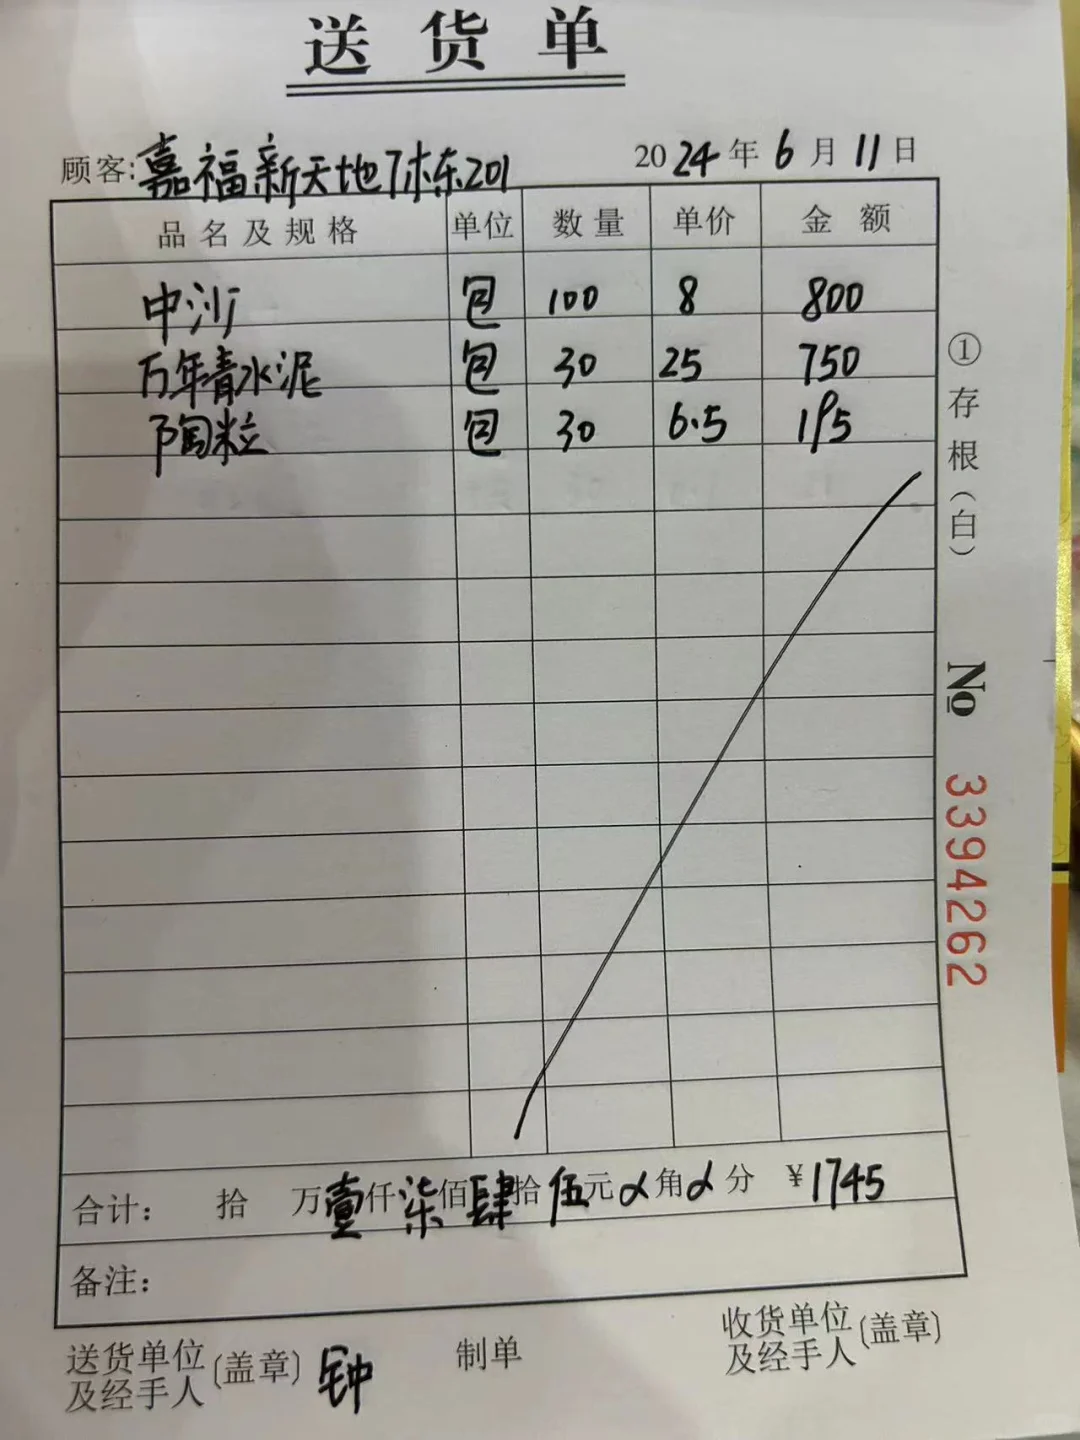 送货单
顾客:嘉福新天地7栋东201 2024年6月11日
品名及规格 单位 数量 单价 金额
中沙 包 100 8 800
万年青水泥 包 30 25 750
陶粒 包 30 6.5 195
①存根(白)
No 3394262
合计: 拾 万壹仟柒佰肆拾伍元α角α分 ¥1745
备注:
送货单位及经手人(盖章) 钟 制单 收货单位及经手人(盖章)